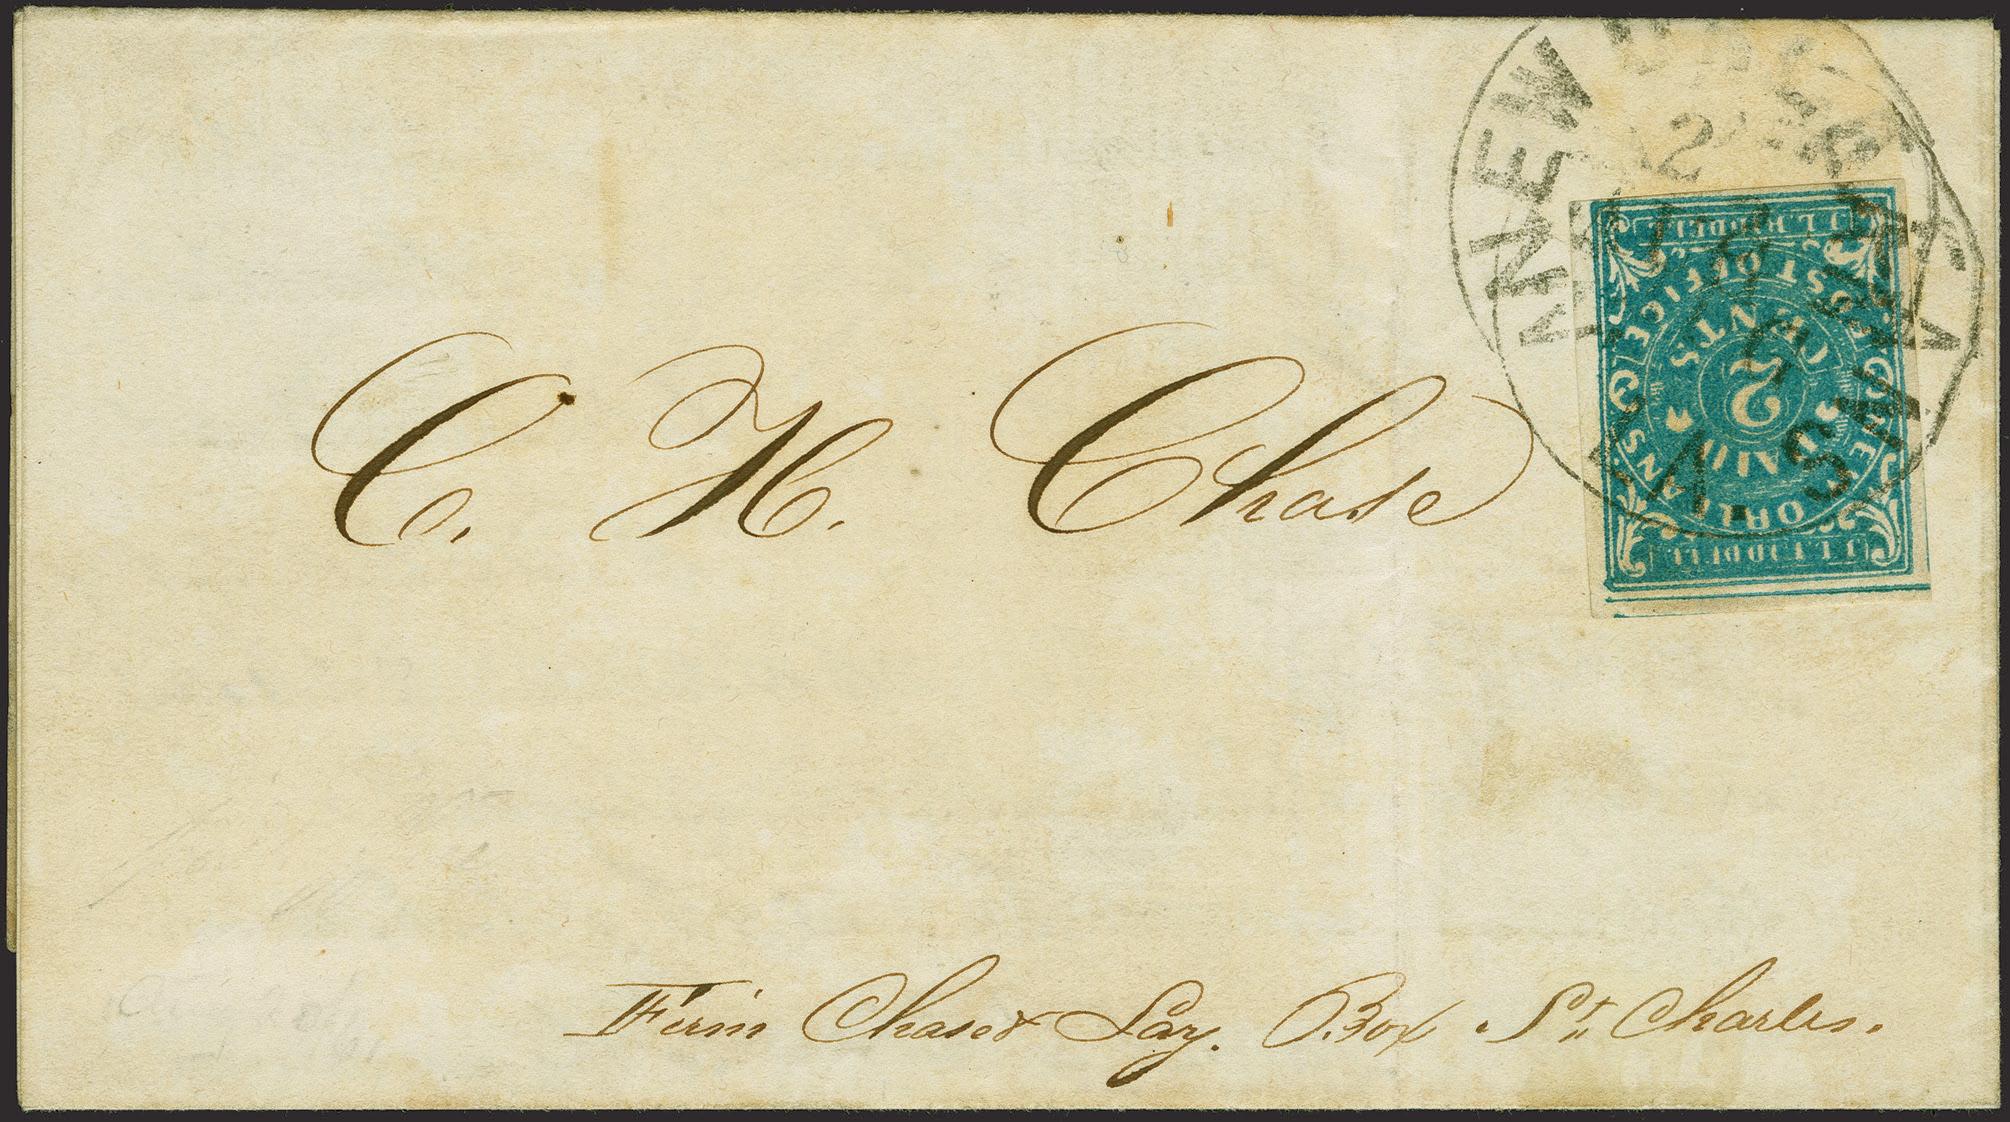 C. H. Chase
Firm Chase & Lay. P. Box. St. Charles.
NEW ORLEANS
J. L. RIDDELL
NEW ORLEANS POST OFFICE
2
CENTS
PAID
J. L. RIDDELL